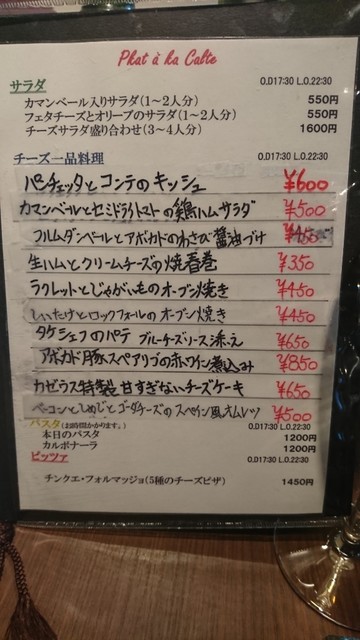 Phat à ka Calte
サラダ O.D17:30 L.O.22:30
カマンベール入りサラダ(1~2人分) 550円
フェタチーズとオリーブのサラダ(1~2人分) 550円
チーズサラダ盛り合わせ(3~4人分) 1600円
チーズ一品料理 O.D17:30 L.O.22:30
パンチェッタとコンテのキッシュ ¥600
カマンベールとセミドライトマトの鶏ハムサラダ ¥500
フルムダンベールとアボカドのわさび醤油づけ
生ハムとクリームチーズの焼春巻 ¥350
ラクレットとじゃがいものオーブン焼き ¥450
しいたけとロックフォールのオーブン焼き ¥450
タケシェフのパテ ブルーチーズソース添え ¥650
アボカド豚スペアリブの赤ワイン煮込み ¥850
カゼウラス特製 甘すぎないチーズケーキ ¥650
ベーコンとしめじとゴーダチーズのスペイン風オムレツ ¥500
パスタ(お時間かかります。) O.D17:30 L.O.22:30
本日のパスタ 1200円
カルボナーラ 1200円
ピッツァ O.D17:30 L.O.22:30
チンクエ・フォルマッジョ(5種のチーズピザ) 1450円